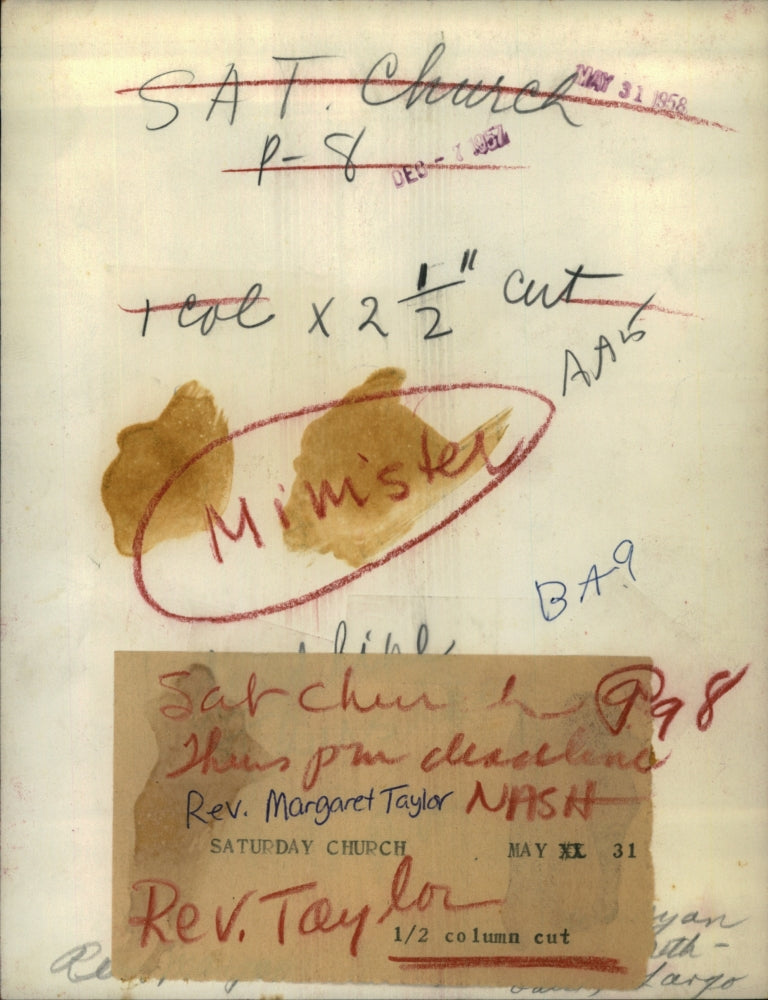 SAT. Church MAY 31 1958
P-8 DEC - 7 1957
1 col x 2 1/2" cut
AA5
Minister
BA9
Sat Church Pg 8
Thurs pm deadline
Rev. Margaret Taylor NASH
SATURDAY CHURCH MAY XX 31
Rev. Taylor
1/2 column cut
Largo